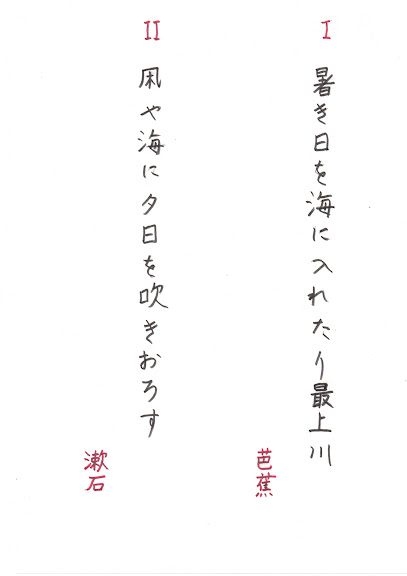 I
暑き日を海に入れたり最上川
芭蕉
II
凩や海に夕日を吹きおろす
漱石